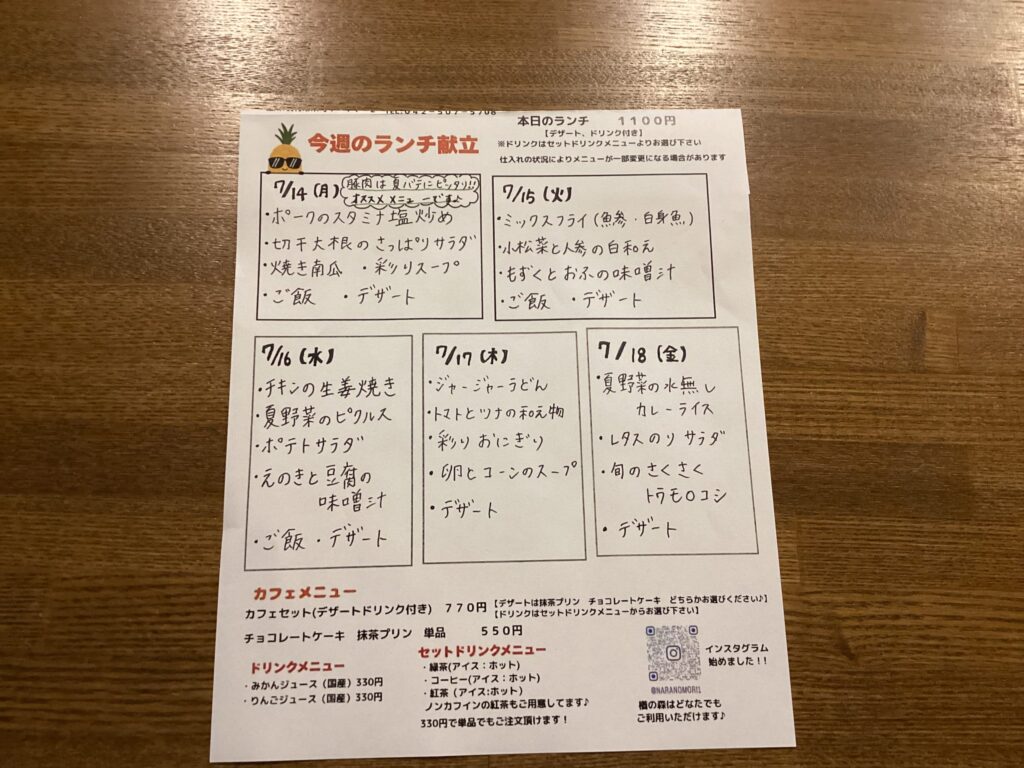 TEL:042-507-5706
本日のランチ　1100円
【デザート、ドリンク付き】
※ドリンクはセットドリンクメニューよりお選び下さい
仕入れの状況によりメニューが一部変更になる場合があります
今週のランチ献立
7/14(月)
豚肉は夏バテにピッタリ!!
オススメメニューです♪
・ポークのスタミナ塩炒め
・切干大根のさっぱりサラダ
・焼き南瓜　・彩りスープ
・ご飯　・デザート
7/15(火)
・ミックスフライ(魚参・白身魚)
・小松菜と人参の白和え
・もずくとおふの味噌汁
・ご飯　・デザート
7/16(水)
・チキンの生姜焼き
・夏野菜のピクルス
・ポテトサラダ
・えのきと豆腐の
味噌汁
・ご飯・デザート
7/17(木)
・ジャージャーうどん
・トマトとツナの和え物
・彩りおにぎり
・卵とコーンのスープ
・デザート
7/18(金)
・夏野菜の水無し
カレーライス
・レタスのりサラダ
・旬のさくさく
トウモロコシ
・デザート
カフェメニュー
カフェセット(デザートドリンク付き)　770円【デザートは抹茶プリン　チョコレートケーキ　どちらかお選びください♪】
【ドリンクはセットドリンクメニューからお選び下さい】
チョコレートケーキ　抹茶プリン　単品　550円
ドリンクメニュー
・みかんジュース（国産）330円
・りんごジュース（国産）330円
セットドリンクメニュー
・緑茶(アイス：ホット)
・コーヒー(アイス：ホット)
・紅茶（アイス:ホット）
ノンカフインの紅茶もご用意してます♪
330円で単品でもご注文頂けます！
@NARANOMORI1
インスタグラム
始めました！！
楢の森はどなたでも
ご利用いただけます♪